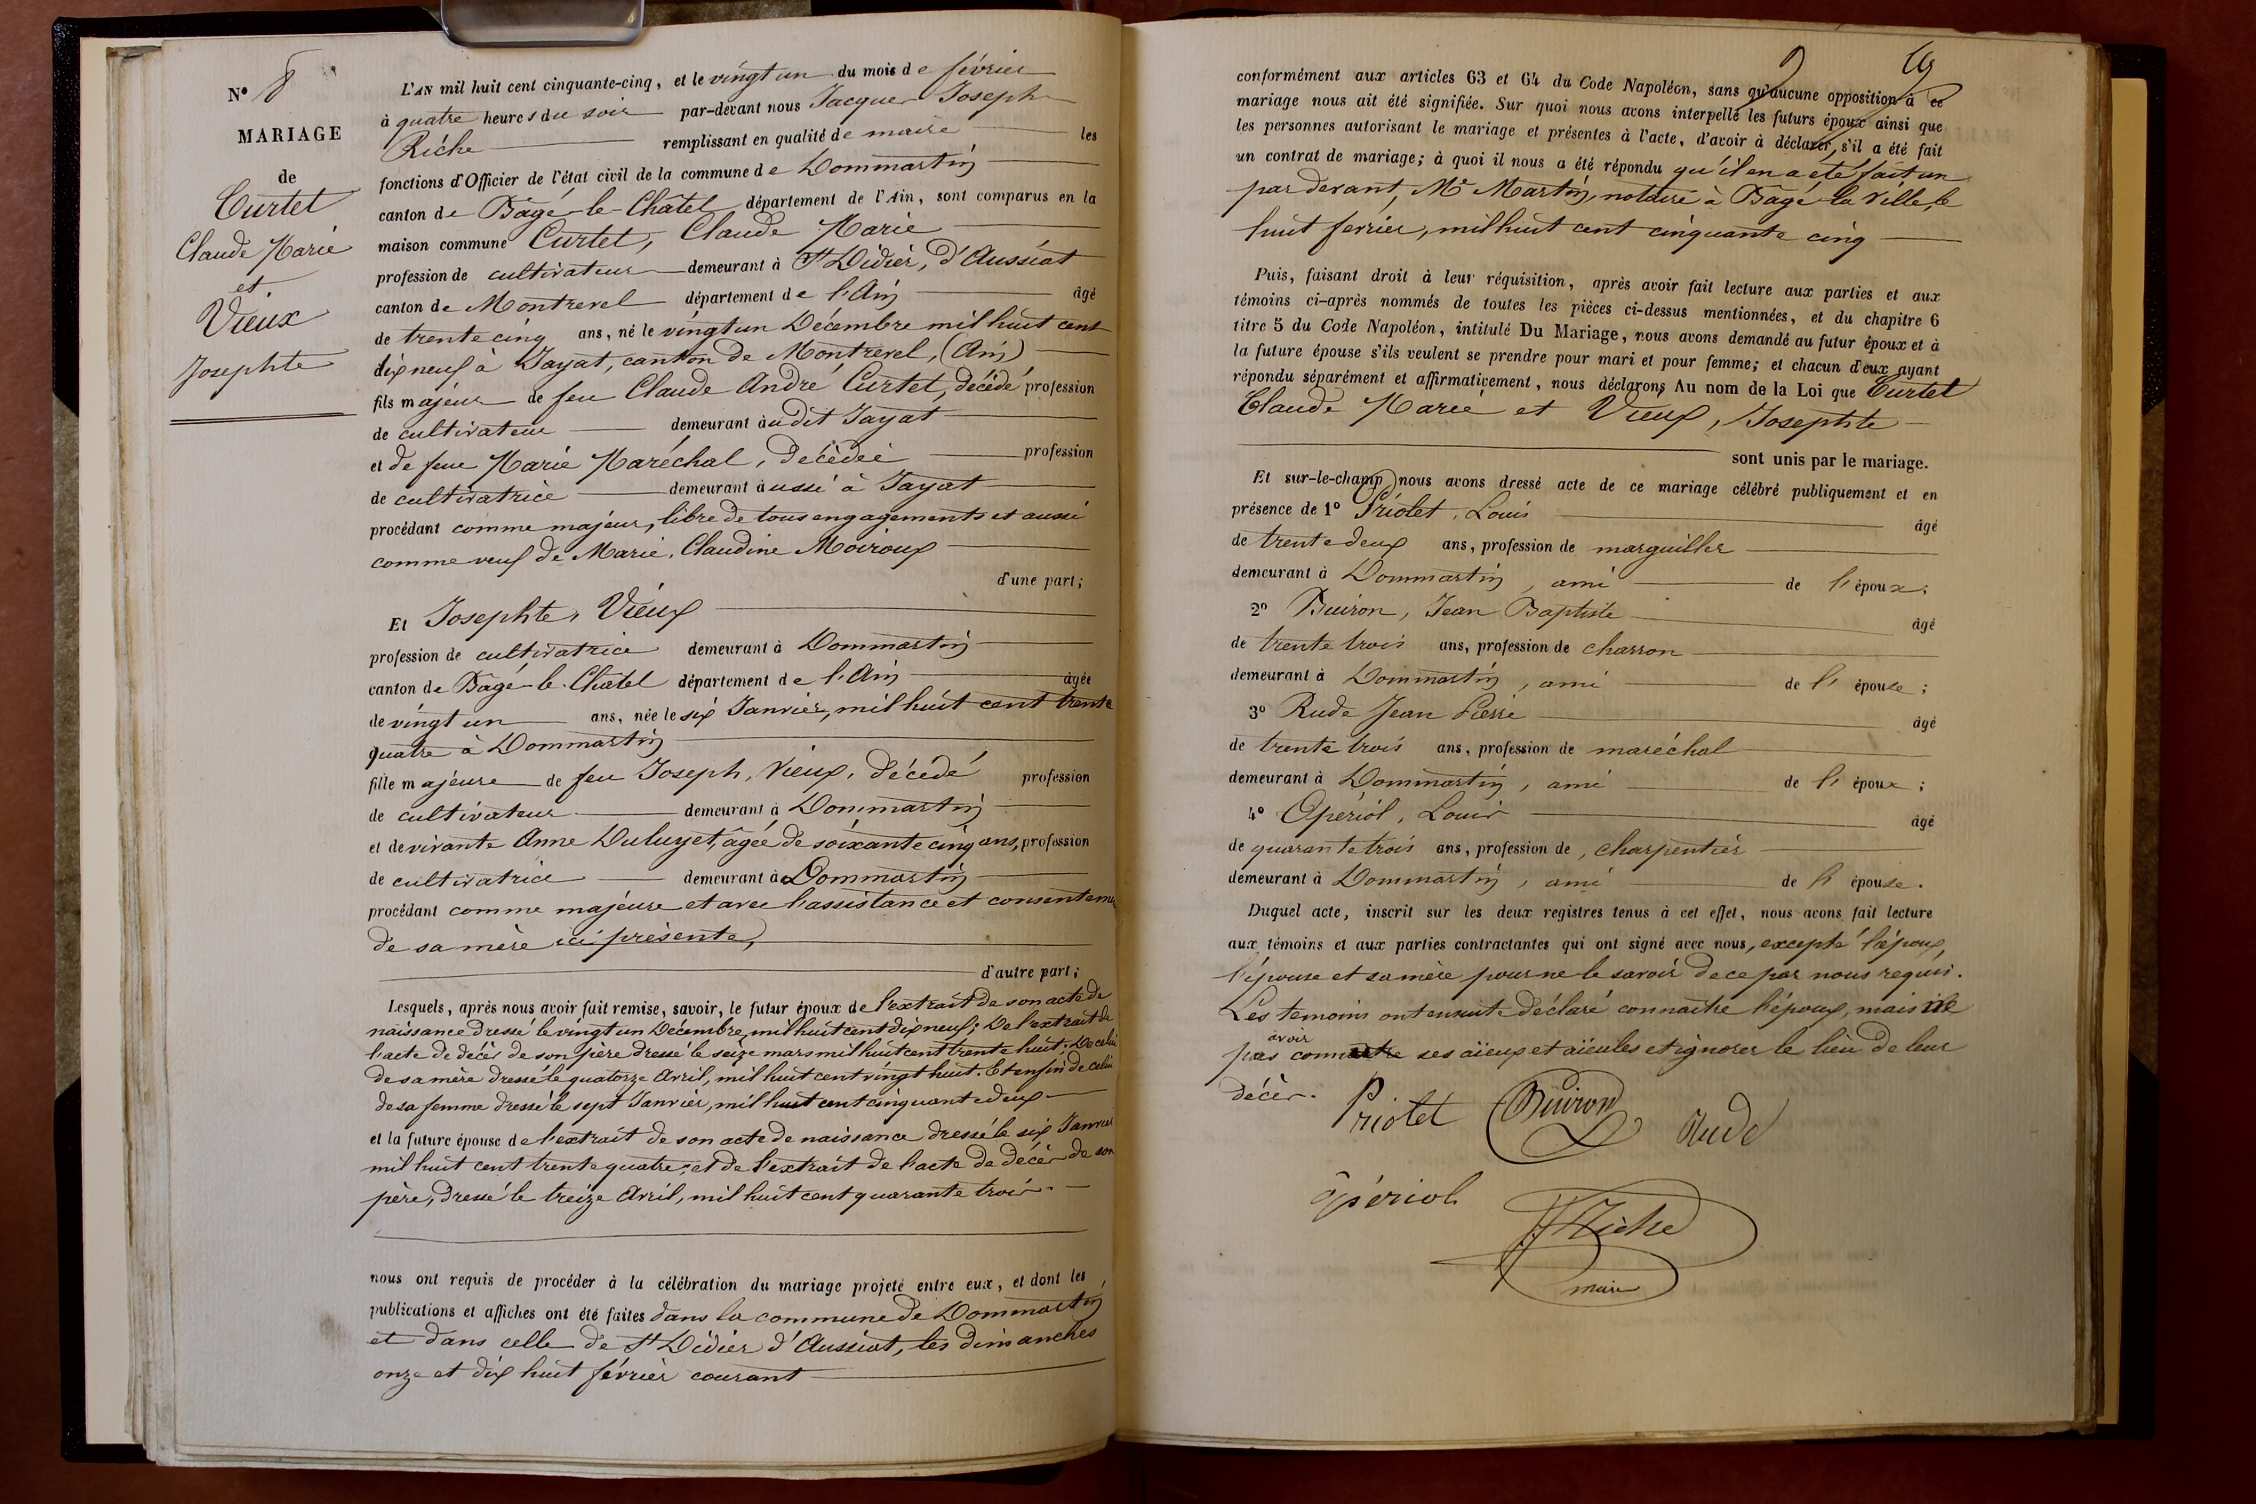 N° 8
MARIAGE
de
Curtet
Claude Marie
et
Vieux
Josephte
L'AN mil huit cent cinquante-cinq, et le vingt un du mois de février
à quatre heures du soir par-devant nous Jacques Joseph
Riche remplissant en qualité de maire les
fonctions d'Officier de l'état civil de la commune de Dommartin
canton de Bâgé-le-Châtel département de l'Ain, sont comparus en la
maison commune Curtet, Claude Marie
profession de cultivateur demeurant à St Didier, d'Aussiat
canton de Montrevel département de l'Ain âgé
de trente cinq ans, né le vingt un Décembre mil huit cent
dix neuf à Jayat, canton de Montrevel, (Ain)
fils majeur de feu Claude André Curtet, décédé profession
de cultivateur demeurant audit Jayat
et de feue Marie Maréchal, décédée profession
de cultivatrice demeurant aussi à Jayat
procédant comme majeur, libre de tous engagements et aussi
comme veuf de Marie, Claudine Moiroux
d'une part;
Et Josephte, Vieux
profession de cultivatrice demeurant à Dommartin
canton de Bâgé-le-Châtel département de l'Ain âgée
de vingt un ans, née le six Janvier, mil huit cent trente
quatre à Dommartin
fille majeure de feu Joseph, Vieux, décédé profession
de cultivateur demeurant à Dommartin
et de vivante Anne Duluyet, âgée de soixante cinq ans, profession
de cultivatrice demeurant à Dommartin
procédant comme majeure et avec l'assistance et consenteme
de sa mère ici présente,
d'autre part;
Lesquels, après nous avoir fait remise, savoir, le futur époux de l'extrait de son acte de
naissance dressé le vingt un Décembre, mil huit cent dix neuf; De l'extrait de
l'acte de décès de son père dressé le seize mars mil huit cent trente huit; De celui
de sa mère dressé le quatorze Avril, mil huit cent vingt huit. Et enfin de celui
de sa femme dressé le sept Janvier, mil huit cent cinquante deux
et la future épouse de l'extrait de son acte de naissance dressé le six Janvier
mil huit cent trente quatre; et de l'extrait de l'acte de décès de son
père, dressé le treize Avril, mil huit cent quarante trois.
nous ont requis de procéder à la célébration du mariage projeté entre eux, et dont les
publications et affiches ont été faites dans la commune de Dommartin
et dans celle de St Didier d'Aussiat, les dimanches
onze et dix huit février courant
conformément aux articles 63 et 64 du Code Napoléon, sans qu'aucune opposition à ce
mariage nous ait été signifiée. Sur quoi nous avons interpellé les futurs époux ainsi que
les personnes autorisant le mariage et présentes à l'acte, d'avoir à déclarer, s'il a été fait
un contrat de mariage; à quoi il nous a été répondu qu'il en a été fait un
par devant, Me Martin, notaire à Bâgé la Ville, le
huit fevrier, mil huit cent cinquante cinq
Puis, faisant droit à leur réquisition, après avoir fait lecture aux parties et aux
témoins ci-après nommés de toutes les pièces ci-dessus mentionnées, et du chapitre 6
titre 5 du Code Napoléon, intitulé Du Mariage, nous avons demandé au futur époux et à
la future épouse s'ils veulent se prendre pour mari et pour femme; et chacun d'eux ayant
répondu séparément et affirmativement, nous déclarons Au nom de la Loi que Curtet
Claude Marie et Vieux, Josephte
sont unis par le mariage.
Et sur-le-champ nous avons dressé acte de ce mariage célébré publiquement et en
présence de 1° Priolet, Louis âgé
de trente deux ans, profession de marguiller
demeurant à Dommartin, ami de l'époux;
2° Buiron, Jean Baptiste âgé
de trente trois ans, profession de charron
demeurant à Dommartin, ami de l'épouse;
3° Rude Jean Pierre âgé
de trente trois ans, profession de maréchal
demeurant à Dommartin, ami de l'époux;
4° Apériol, Louis âgé
de quarante trois ans, profession de, charpentier
demeurant à Dommartin, ami de l'épouse.
Duquel acte, inscrit sur les deux registres tenus à cet effet, nous avons fait lecture
aux témoins et aux parties contractantes qui ont signé avec nous, excepté l'époux,
l'épouse et sa mère pour ne le savoir de ce par nous requis.
Les temoins ont ensuite déclaré connaitre l'époux, mais
avoir
pas ses aïeux et aïeules et ignorer le lieu de leur
décès.
Priolet Buiron Rude
apériol
Riche
maire